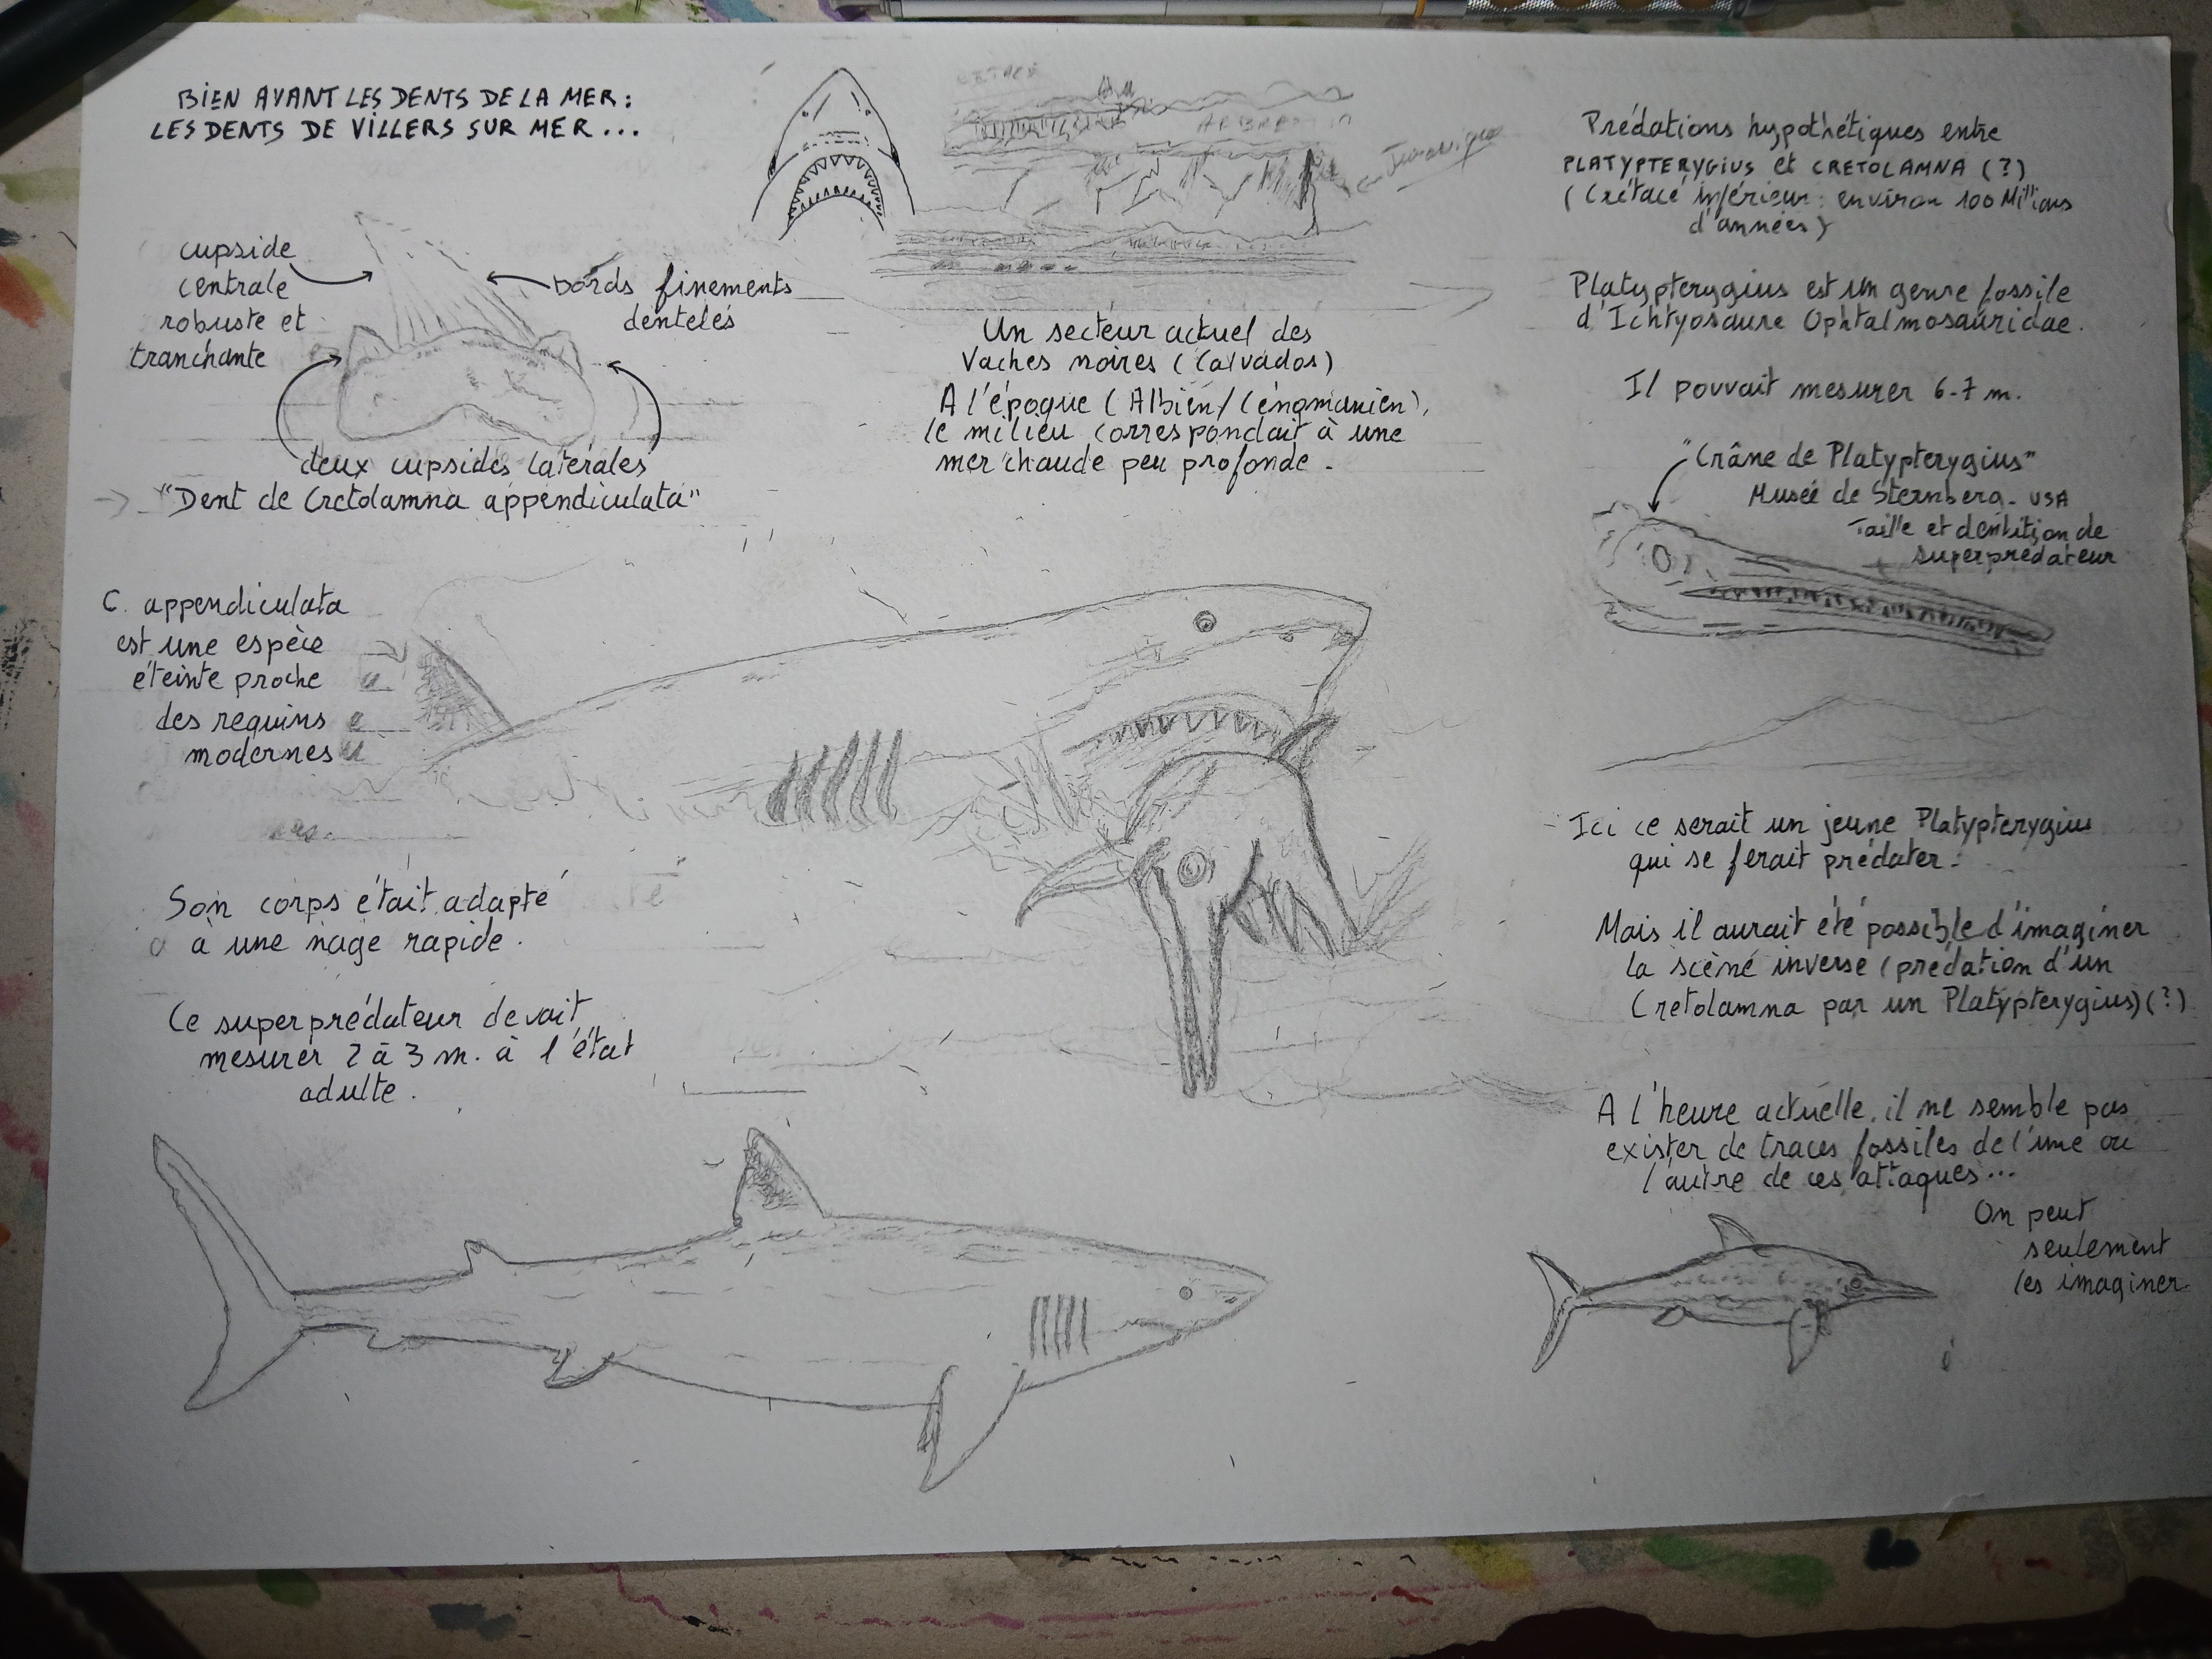 BIEN AVANT LES DENTS DE LA MER :
LES DENTS DE VILLERS SUR MER ...
cupside
centrale
robuste et
tranchante
bords finements
dentelés
deux cupsides latérales
"Dent de Cretolamna appendiculata"
C. appendiculata
est une espèce
éteinte proche
des requins
modernes
Son corps était adapté
à une nage rapide.
Ce superprédateur devait
mesurer 2 à 3 m. à l'état
adulte.
Jurassique
Un secteur actuel des
Vaches noires (Calvados)
A l'époque (Albien/Cénomanien),
le milieu correspondait à une
mer chaude peu profonde.
Prédations hypothétiques entre
PLATYPTERYGIUS et CRETOLAMNA (?)
(Crétacé inférieur : environ 100 Millions
d'années)
Platypterygius est un genre fossile
d'Ichtyosaure Ophtalmosauridae.
Il pouvait mesurer 6-7 m.
"Crâne de Platypterygius"
Musée de Sternberg - USA
Taille et dentition de
superprédateur
Ici ce serait un jeune Platypterygius
qui se ferait prédater.
Mais il aurait été possible d'imaginer
la scène inverse (prédation d'un
Cretolamna par un Platypterygius) (?)
A l'heure actuelle, il ne semble pas
exister de traces fossiles de l'une ou
l'autre de ces attaques...
On peut
seulement
les imaginer